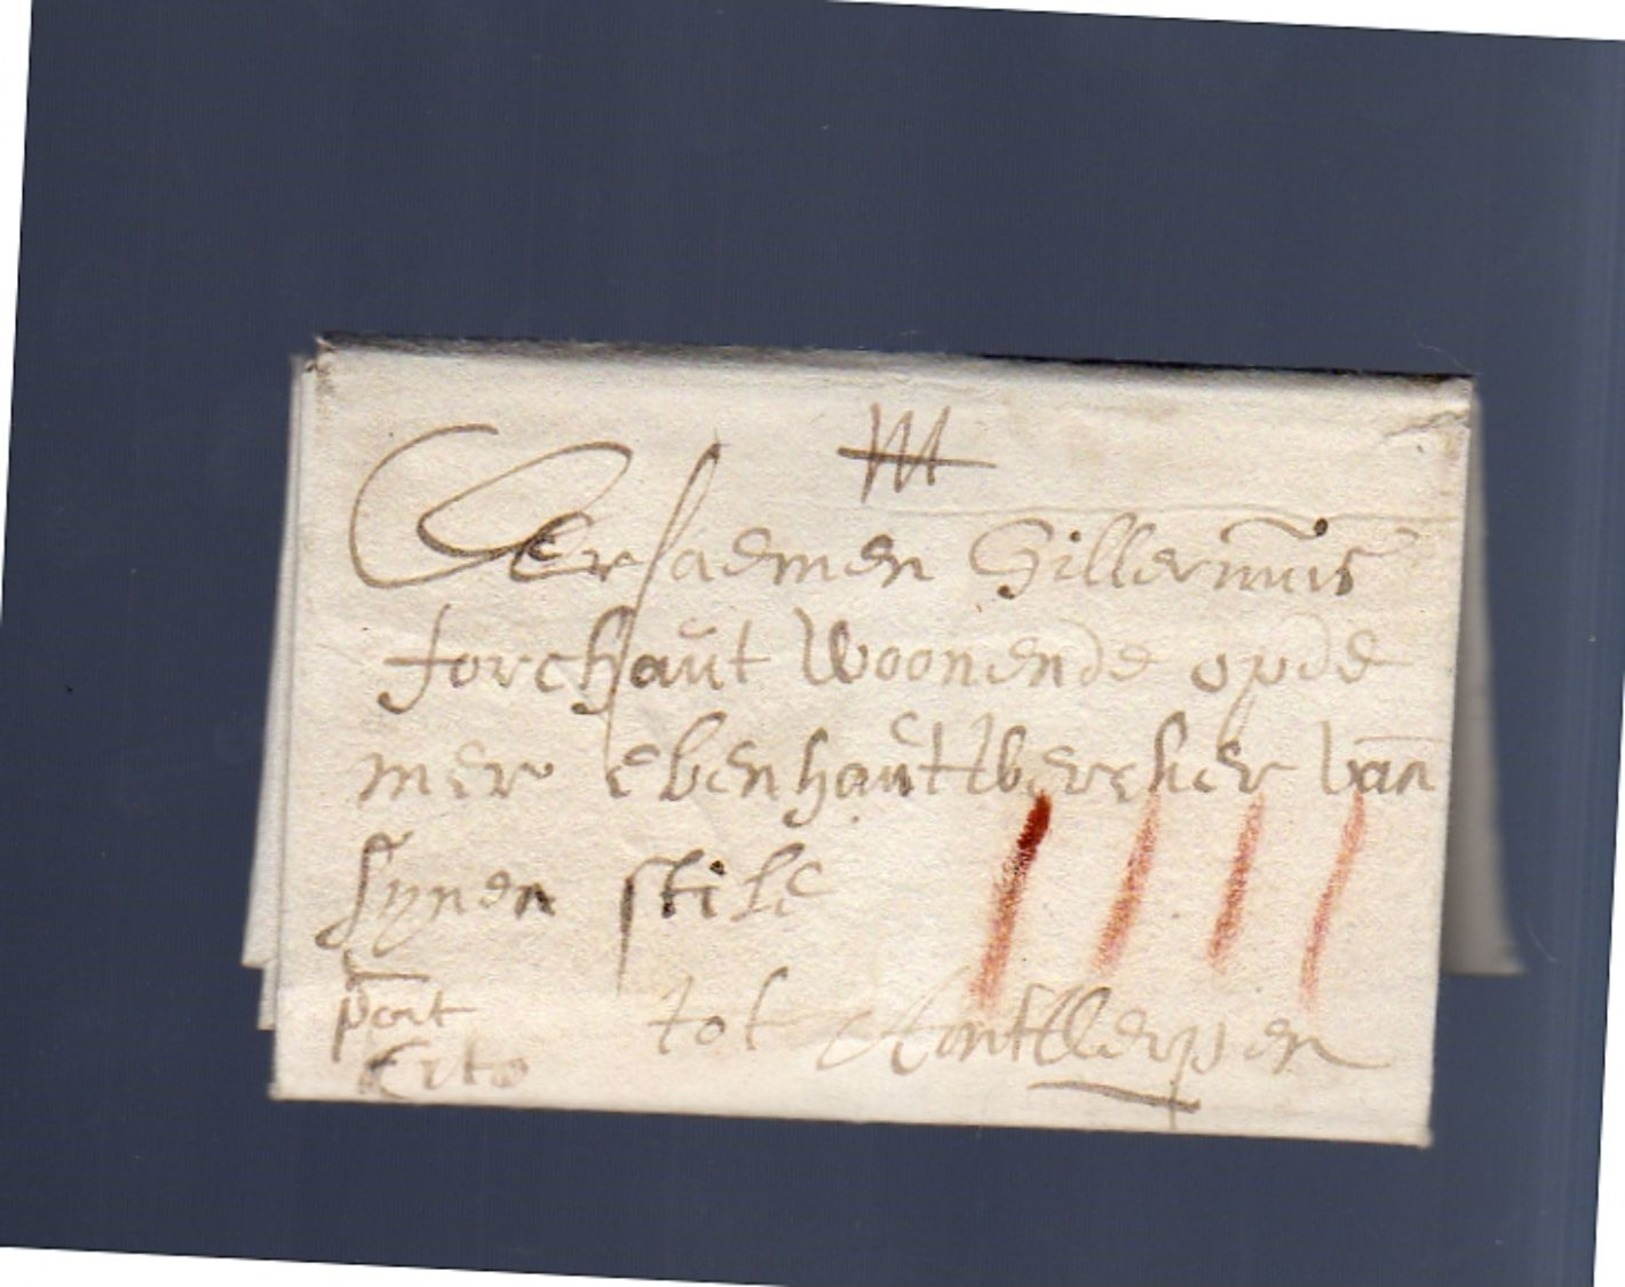 Eersaemen Gillermus
forchaut woonende opde
mer ebenhautwercker van
synen stile
port
cito
tot Antwerpen